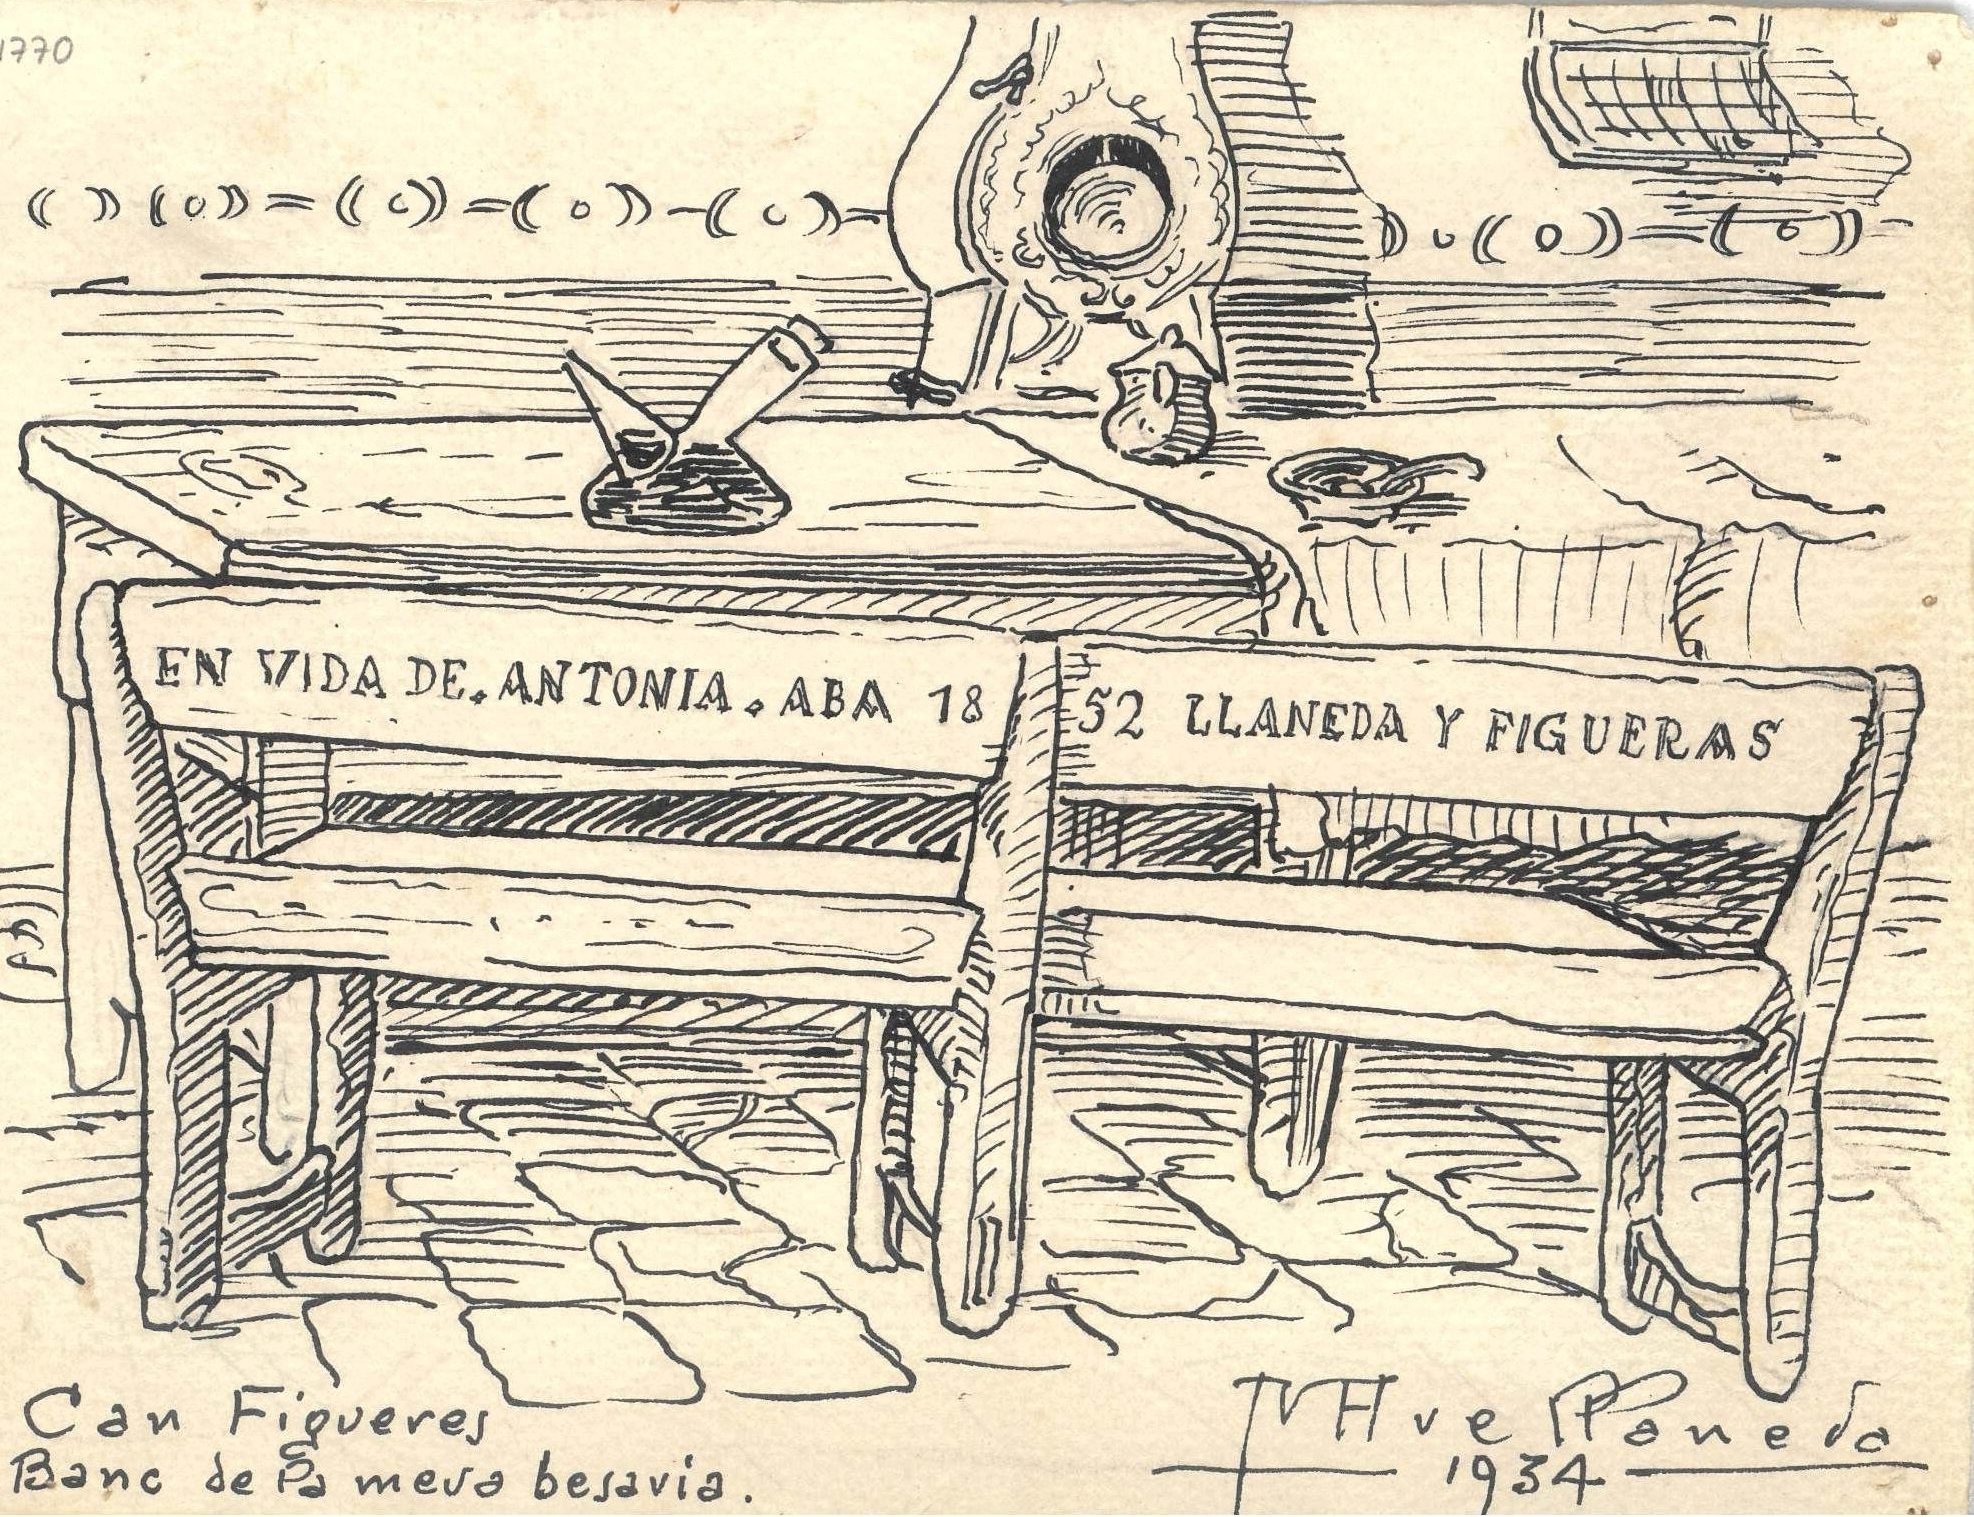 1770
EN VIDA DE. ANTONIA. ABA 18 52 LLANEDA Y FIGUERAS
Can Figueres
Banc de la meva besavia.
1934